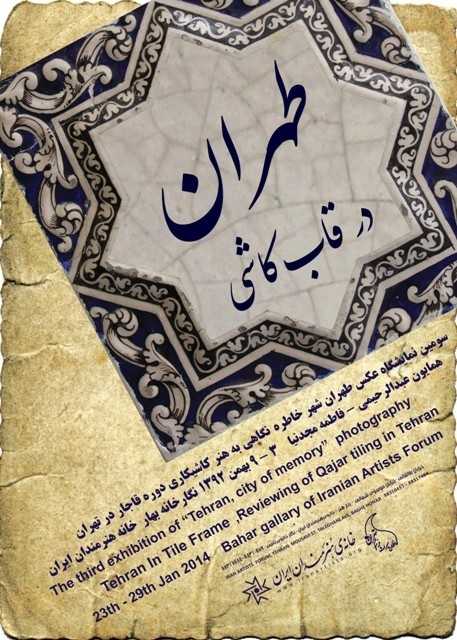 طهران
در قاب کاشی
سومین نمایشگاه عکس طهران شهر خاطره نگاهی به هنر کاشیکاری دوره قاجار در تهران
همایون عبدالرحیمی - فاطمه مجدنیا
۳ - ۹ بهمن ۱۳۹۲ نگارخانه بهار خانه هنرمندان ایران
The third exhibition of "Tehran, city of memory" photography
Tehran In Tile Frame ,Reviewing of Qajar tiling in Tehran
23th - 29th Jan 2014 Bahar gallary of Iranian Artists Forum
خانه‌ی هنرمندان ایران